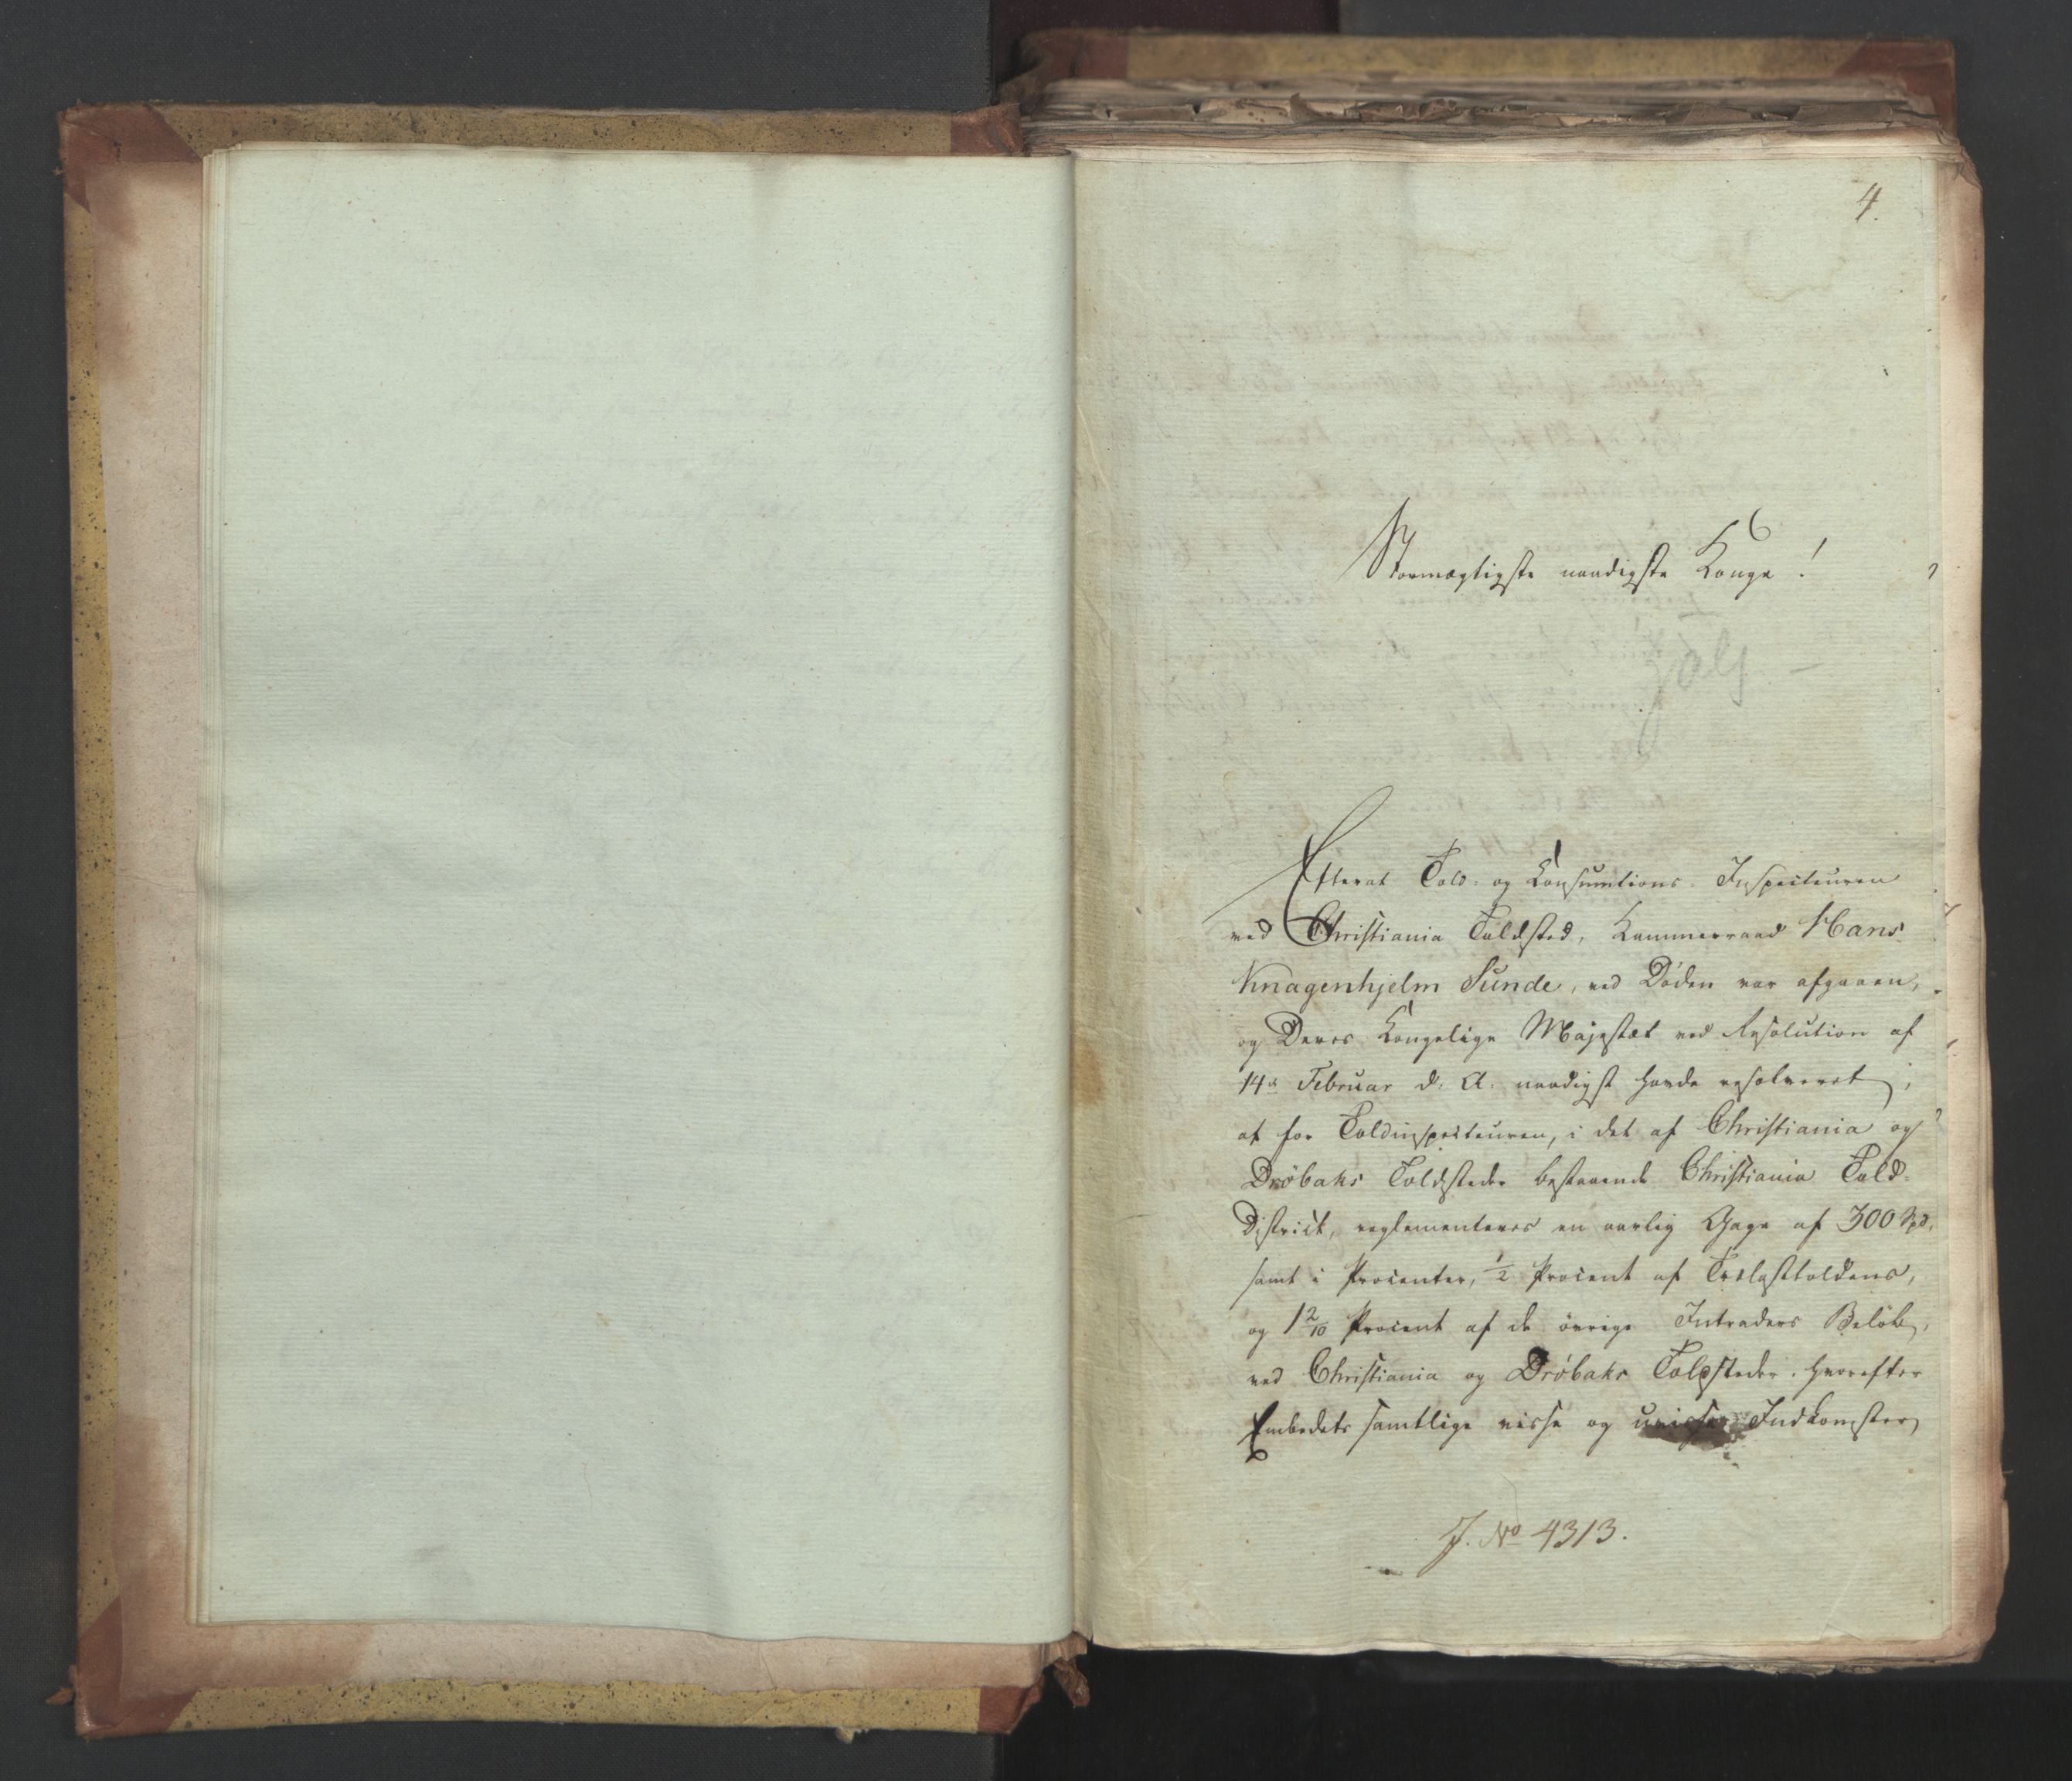 4.
Stormægtigste naadigste Konge!
Efterat Told- og Konsumtions-Inspecteuren
ved Christiania Toldsted, Kammerraad Hans
Knagenhjelm Sunde, ved Døden var afgaaen,
og Deres Kongelige Majestæt ved Resolution af
14de Februar d. A. naadigst havde resolveret,
at for Toldinspecteuren, i det af Christiania og
Drøbaks Toldsteder bestaaende Christiania Told-
District, reglementeres en aarlig Gage af 300 Spd.
samt i Procenter, 1/2 Procent af Trælasttoldens,
og 1 2/10 Procent af de øvrige Intraders Beløb,
ved Christiania og Drøbaks Toldsteder, hvorefter
Embedets samtlige visse og uvisse Indkomster
J. No 4313.